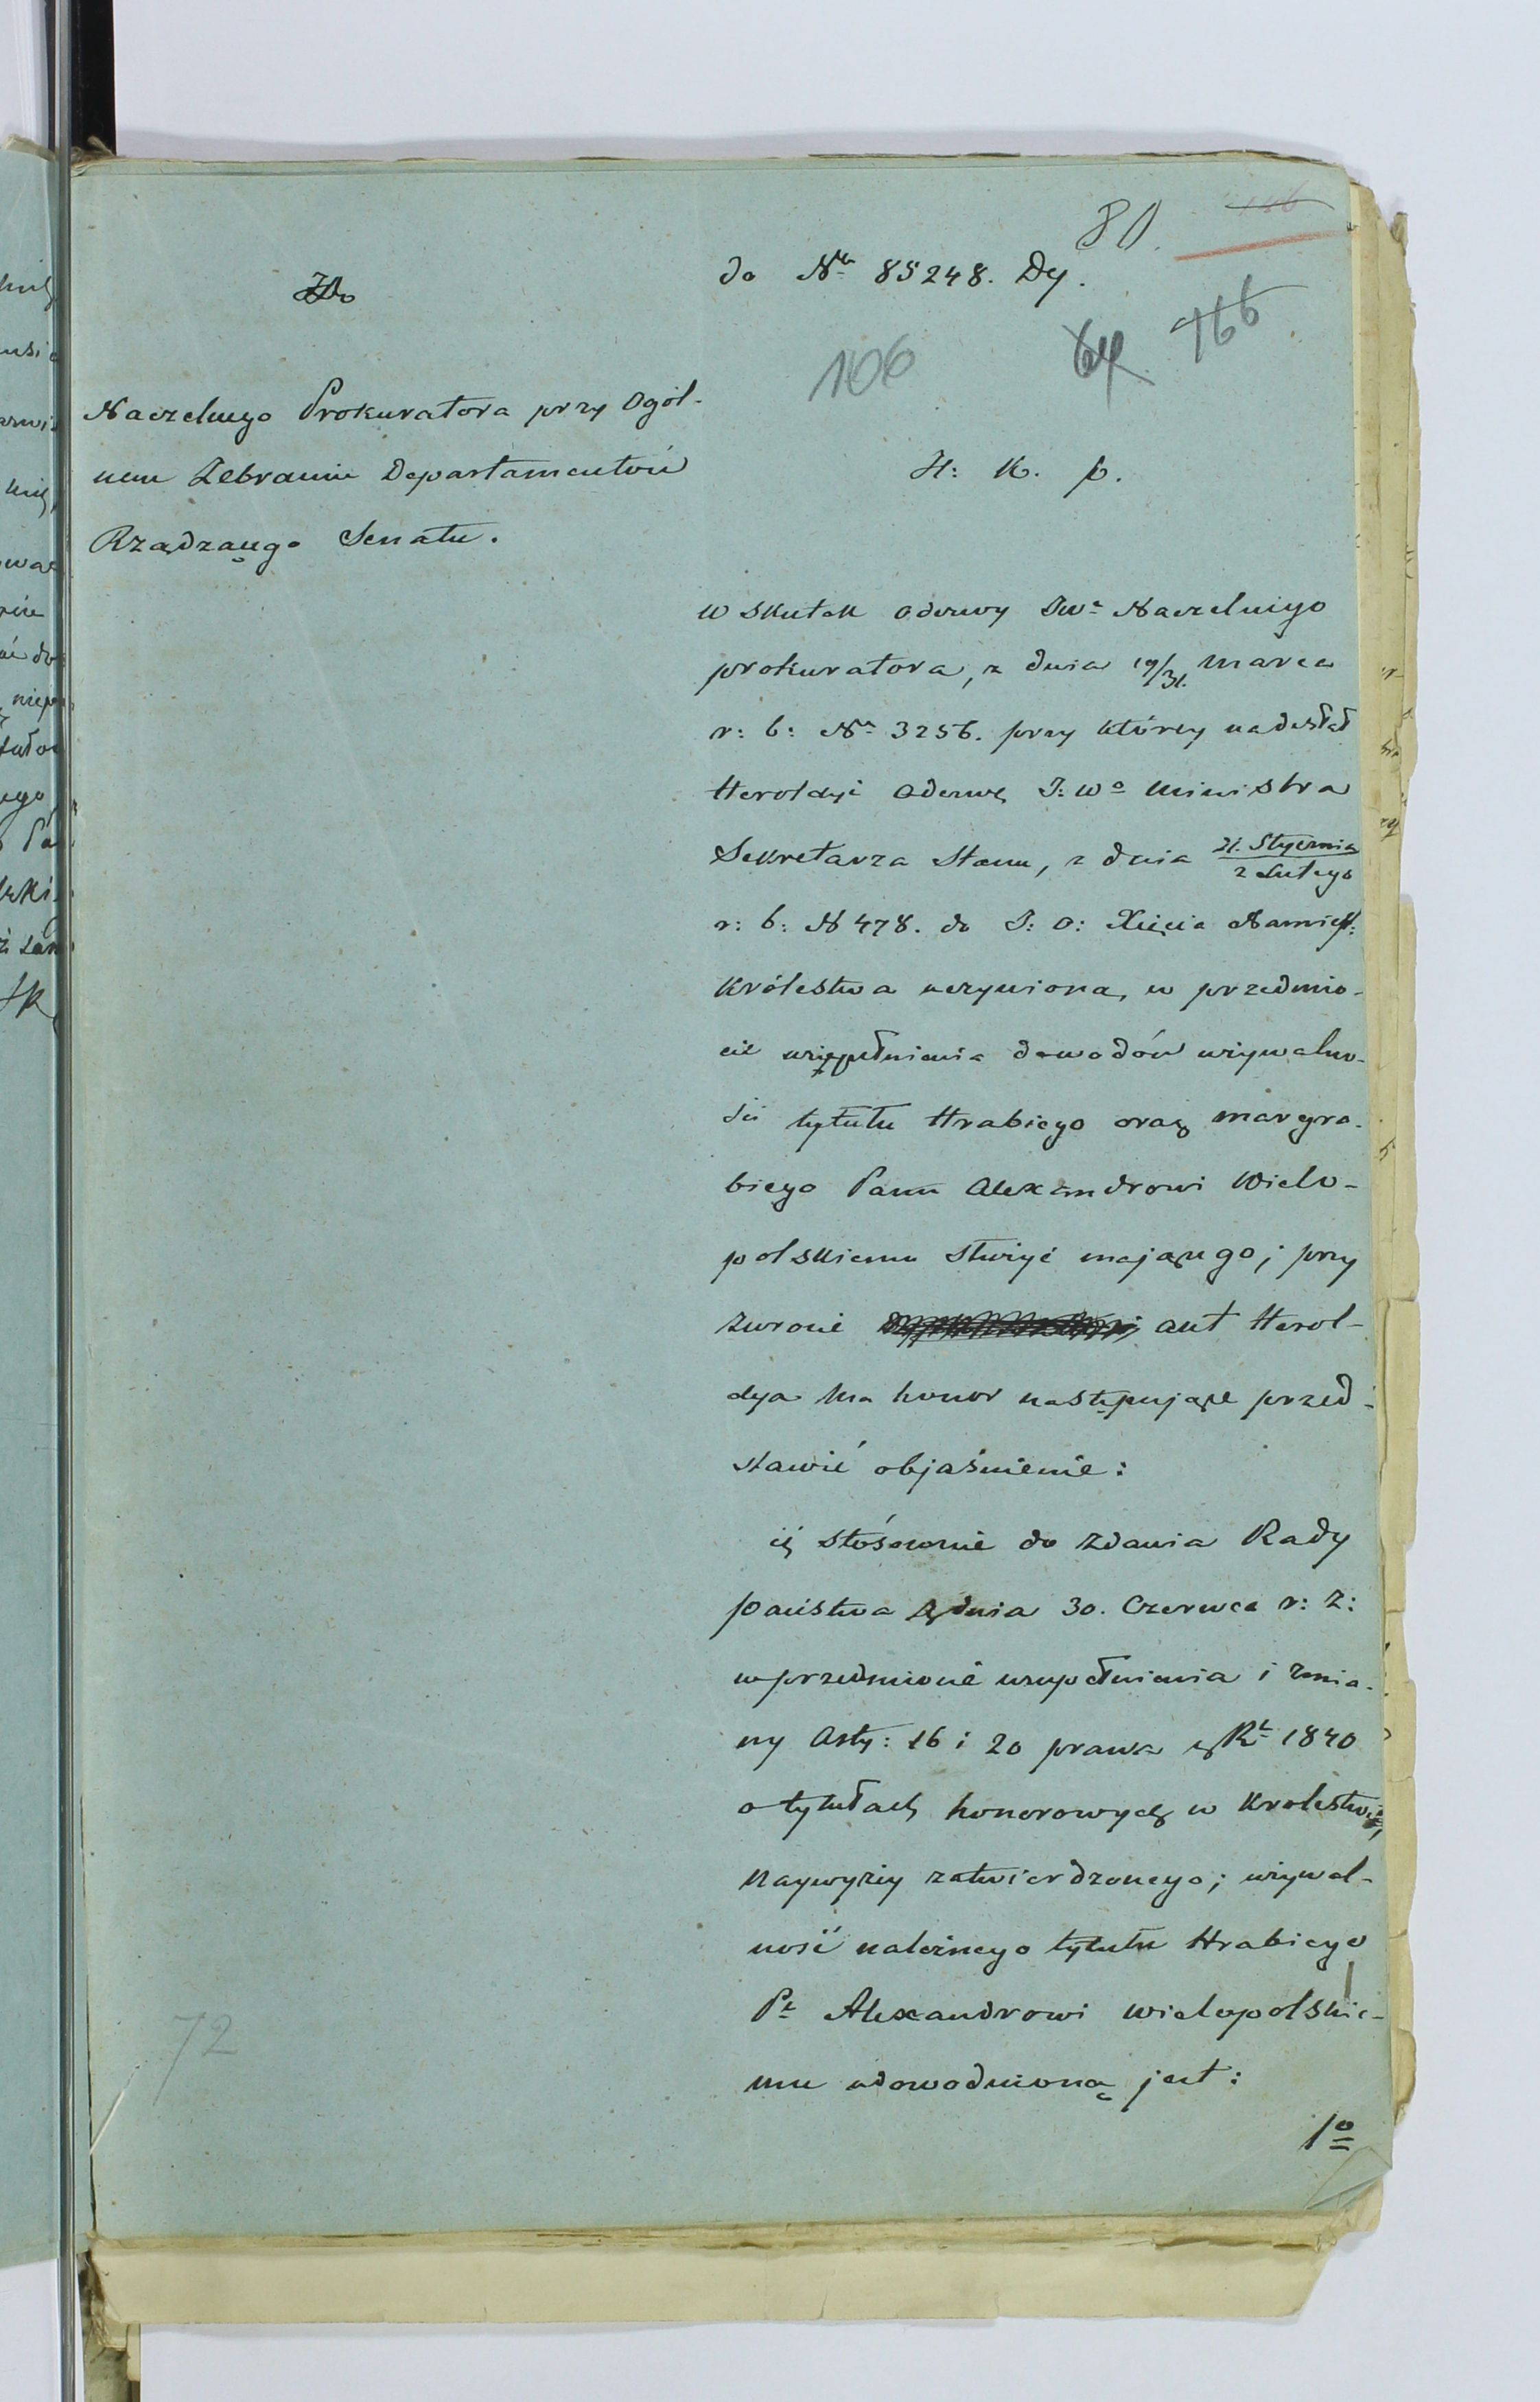 80.
do Nru 85248. Dy.
106
64 166
Do
Naczelnego Prokuratora przy Ogól-
nem Zebraniu Departamentów
Rządzącego Senatu.
H: K. P.
W skutek odezwy JWo Naczelnego
prokuratora, z dnia 19/31. Marca
r: b: No 3256. przy którey nadesłał
Heroldyi odezwę J: Wo Ministra
Sekretarza Stanu, z dnia 21. Stycznia / 2 Lutego
r: b: N 478. do J: O: Xięcia Namiest:
Królestwa uczynioną, w przedmio-
cie uzupełnienia dowodów używalno-
ści tytułu Hrabiego oraz margra-
biego Panu Alexandrowi Wielo-
polskiemu służyć mającego; przy
zwrocie akt Herol-
dya ma honor następujące przed-
stawić objaśnienie:
iż stósownie do zdania Rady
państwa z dnia 30. Czerwca r: z:
w przedmiocie uzupełnienia i zmia-
ny Arty: 16 i 20 prawa z Rt 1840
o tytułach honorowych w Krolestwie,
Naywyżey zatwierdzonego; używal-
ność należnego tytułu Hrabiego
Pu Alexandrowi Wielopolskie-
mu udowodnioną jest:
1o
72